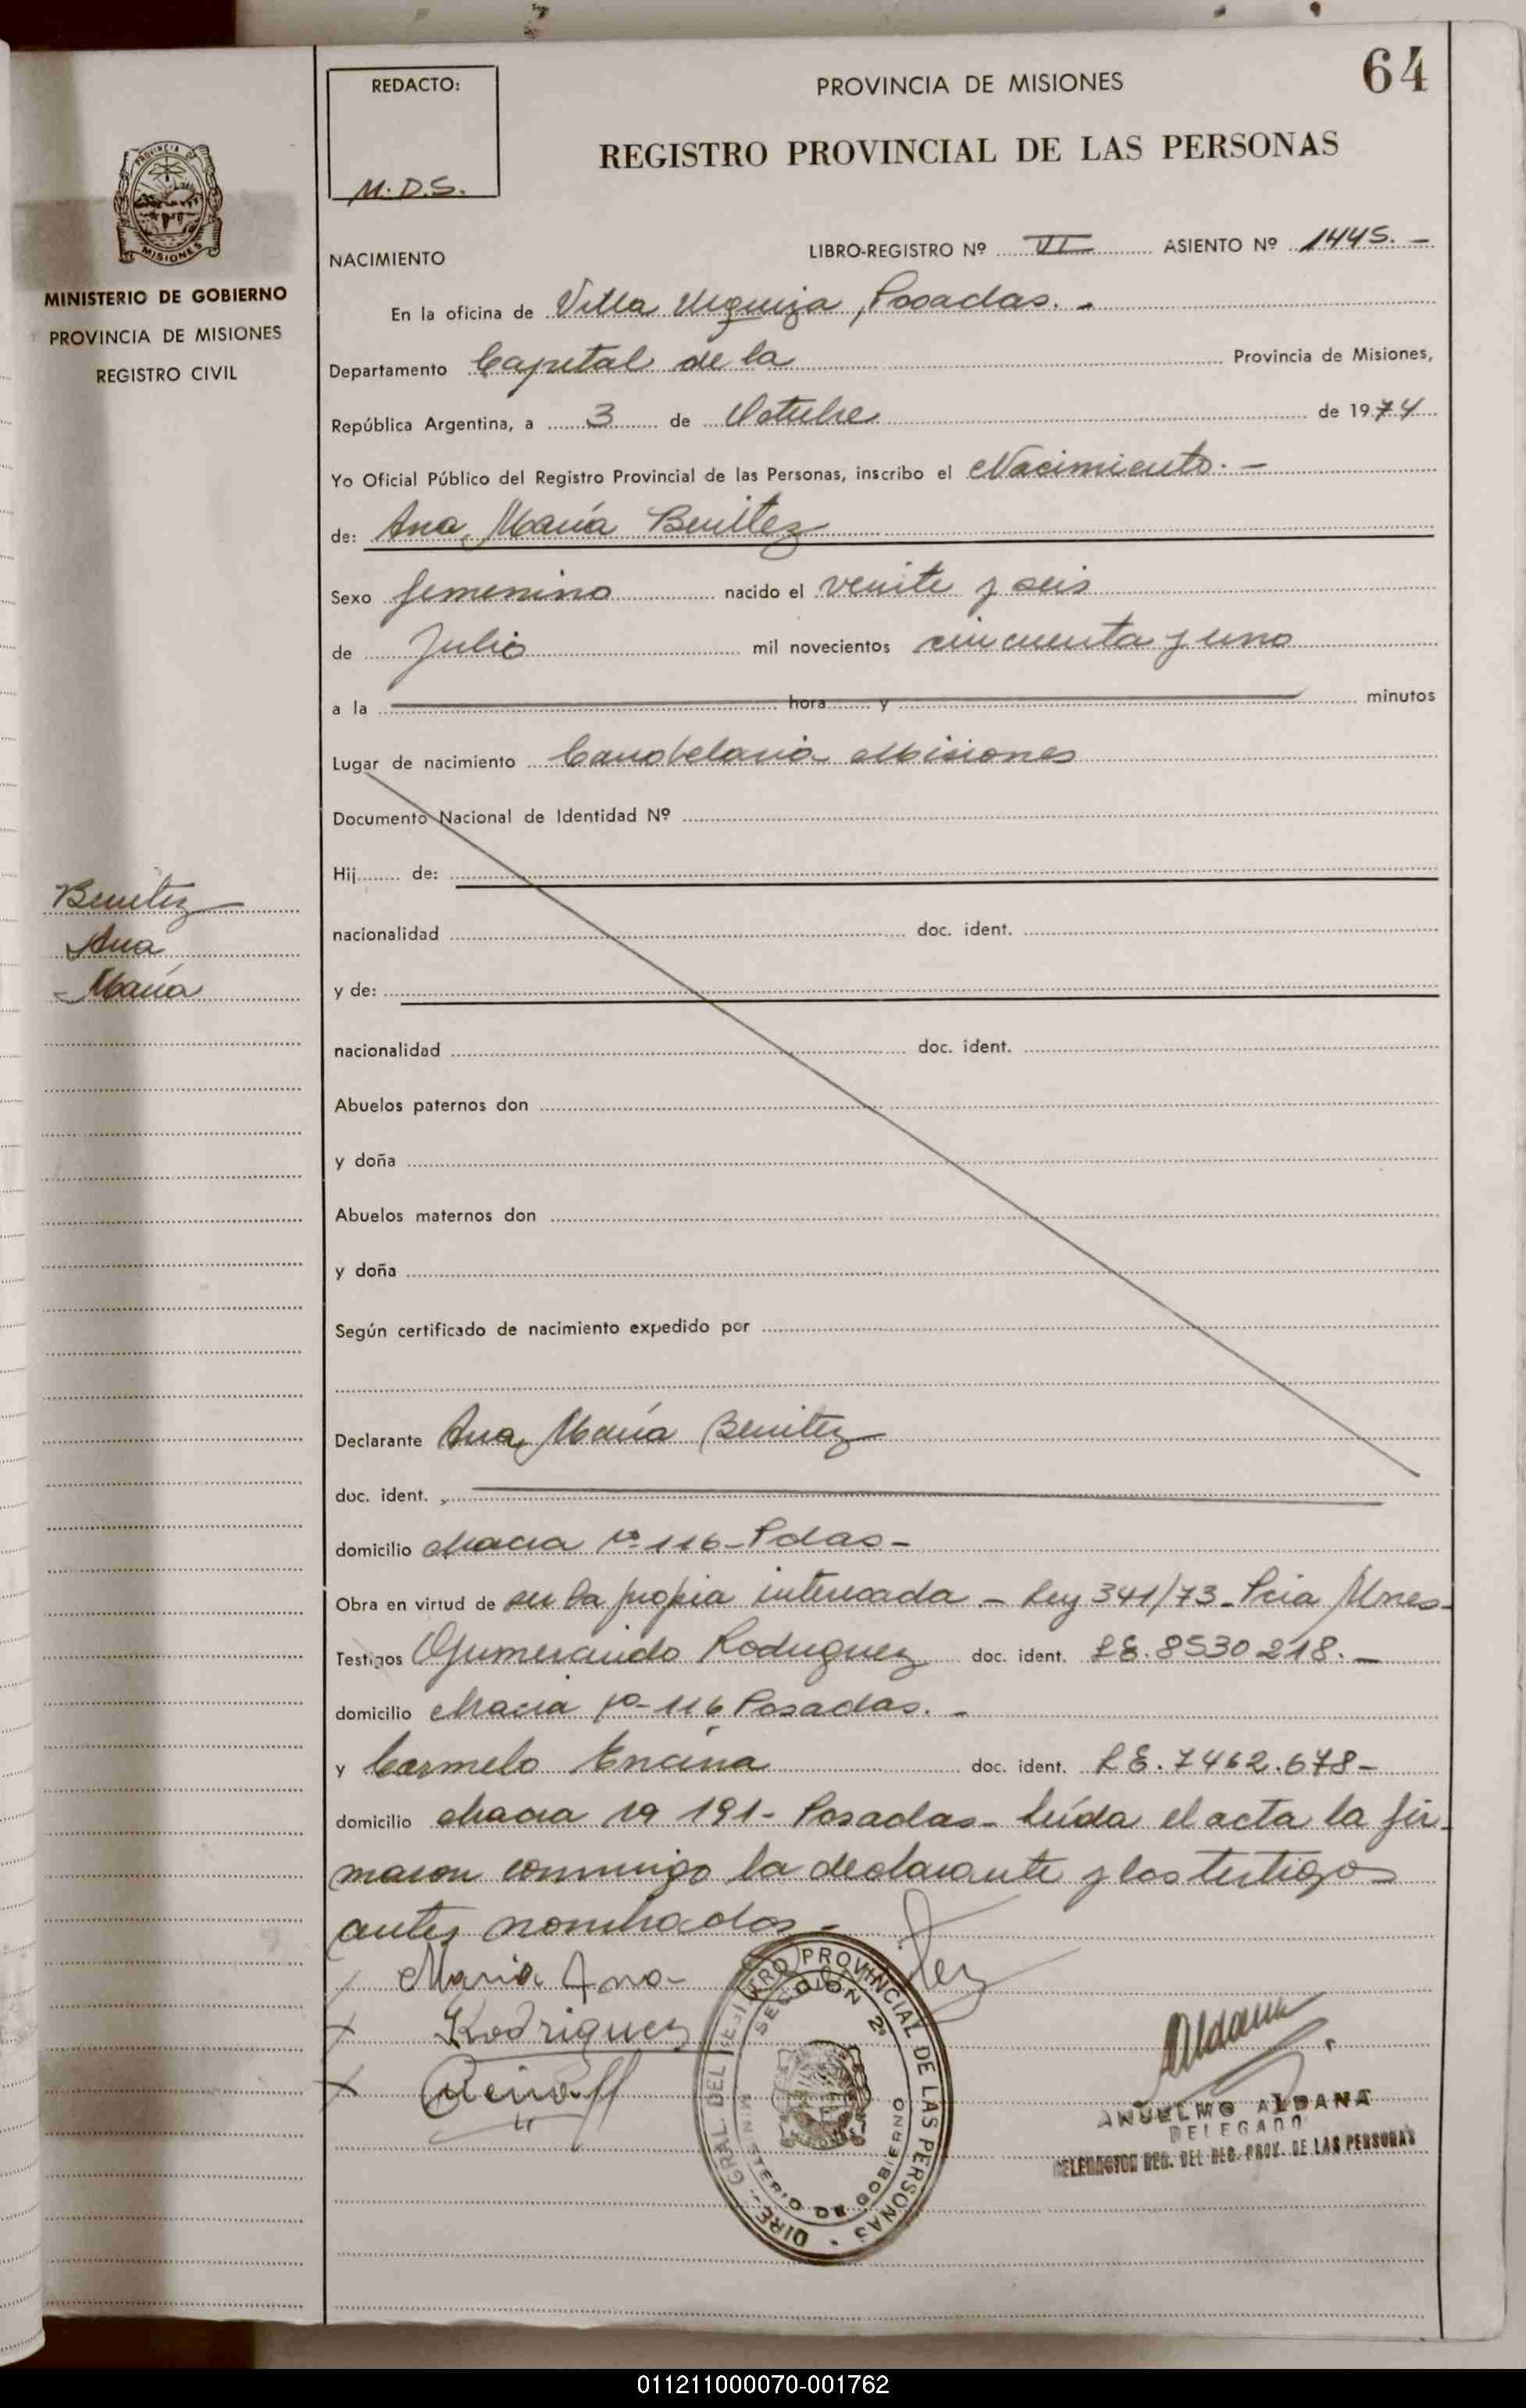 64
REDACTO:
M.D.S.
PROVINCIA DE MISIONES
REGISTRO PROVINCIAL DE LAS PERSONAS
PROVINCIA DE
MISIONES
MINISTERIO DE GOBIERNO
PROVINCIA DE MISIONES
REGISTRO CIVIL
NACIMIENTO LIBRO-REGISTRO Nº VI ASIENTO Nº 1445.-
En la oficina de Villa Urquiza, Posadas.-
Departamento Capital de la Provincia de Misiones,
República Argentina, a 3 de Octubre de 1974
Yo Oficial Público del Registro Provincial de las Personas, inscribo el Nacimiento.-
de: Ana María Benitez
Sexo femenino nacido el veinte y seis
de Julio mil novecientos cincuenta y uno
a la hora y minutos
Lugar de nacimiento Candelaria Misiones
Documento Nacional de Identidad Nº
Hij de:
Benitez
Ana
María
nacionalidad doc. ident.
y de:
nacionalidad doc. ident.
Abuelos paternos don
y doña
Abuelos maternos don
y doña
Según certificado de nacimiento expedido por
Declarante Ana María Benitez
doc. ident.
domicilio chacra Nº 116 - Pdas -
Obra en virtud de ser la propia interesada - Ley 341/73 - Pcia Mnes-
Testigos Gumercindo Rodriguez doc. ident. LE. 8530218.-
domicilio chacra Nº 116 Posadas.-
y Carmelo Encina doc. ident. LE. 7462.678-
domicilio chacra Nº 191- Posadas- leída el acta la fir-
maron conmigo la declarante y los testigos
antes nombrados-
Maria Ana
Rodriguez
DIRE. GRAL. DEL REGISTRO PROVINCIAL DE LAS PERSONAS
SECCION 2ª
MINISTERIO DE GOBIERNO
Aldana
ANSELMO ALDANA
DELEGADO
DELEGACION REG. DEL REG. PROV. DE LAS PERSONAS
011211000070-001762